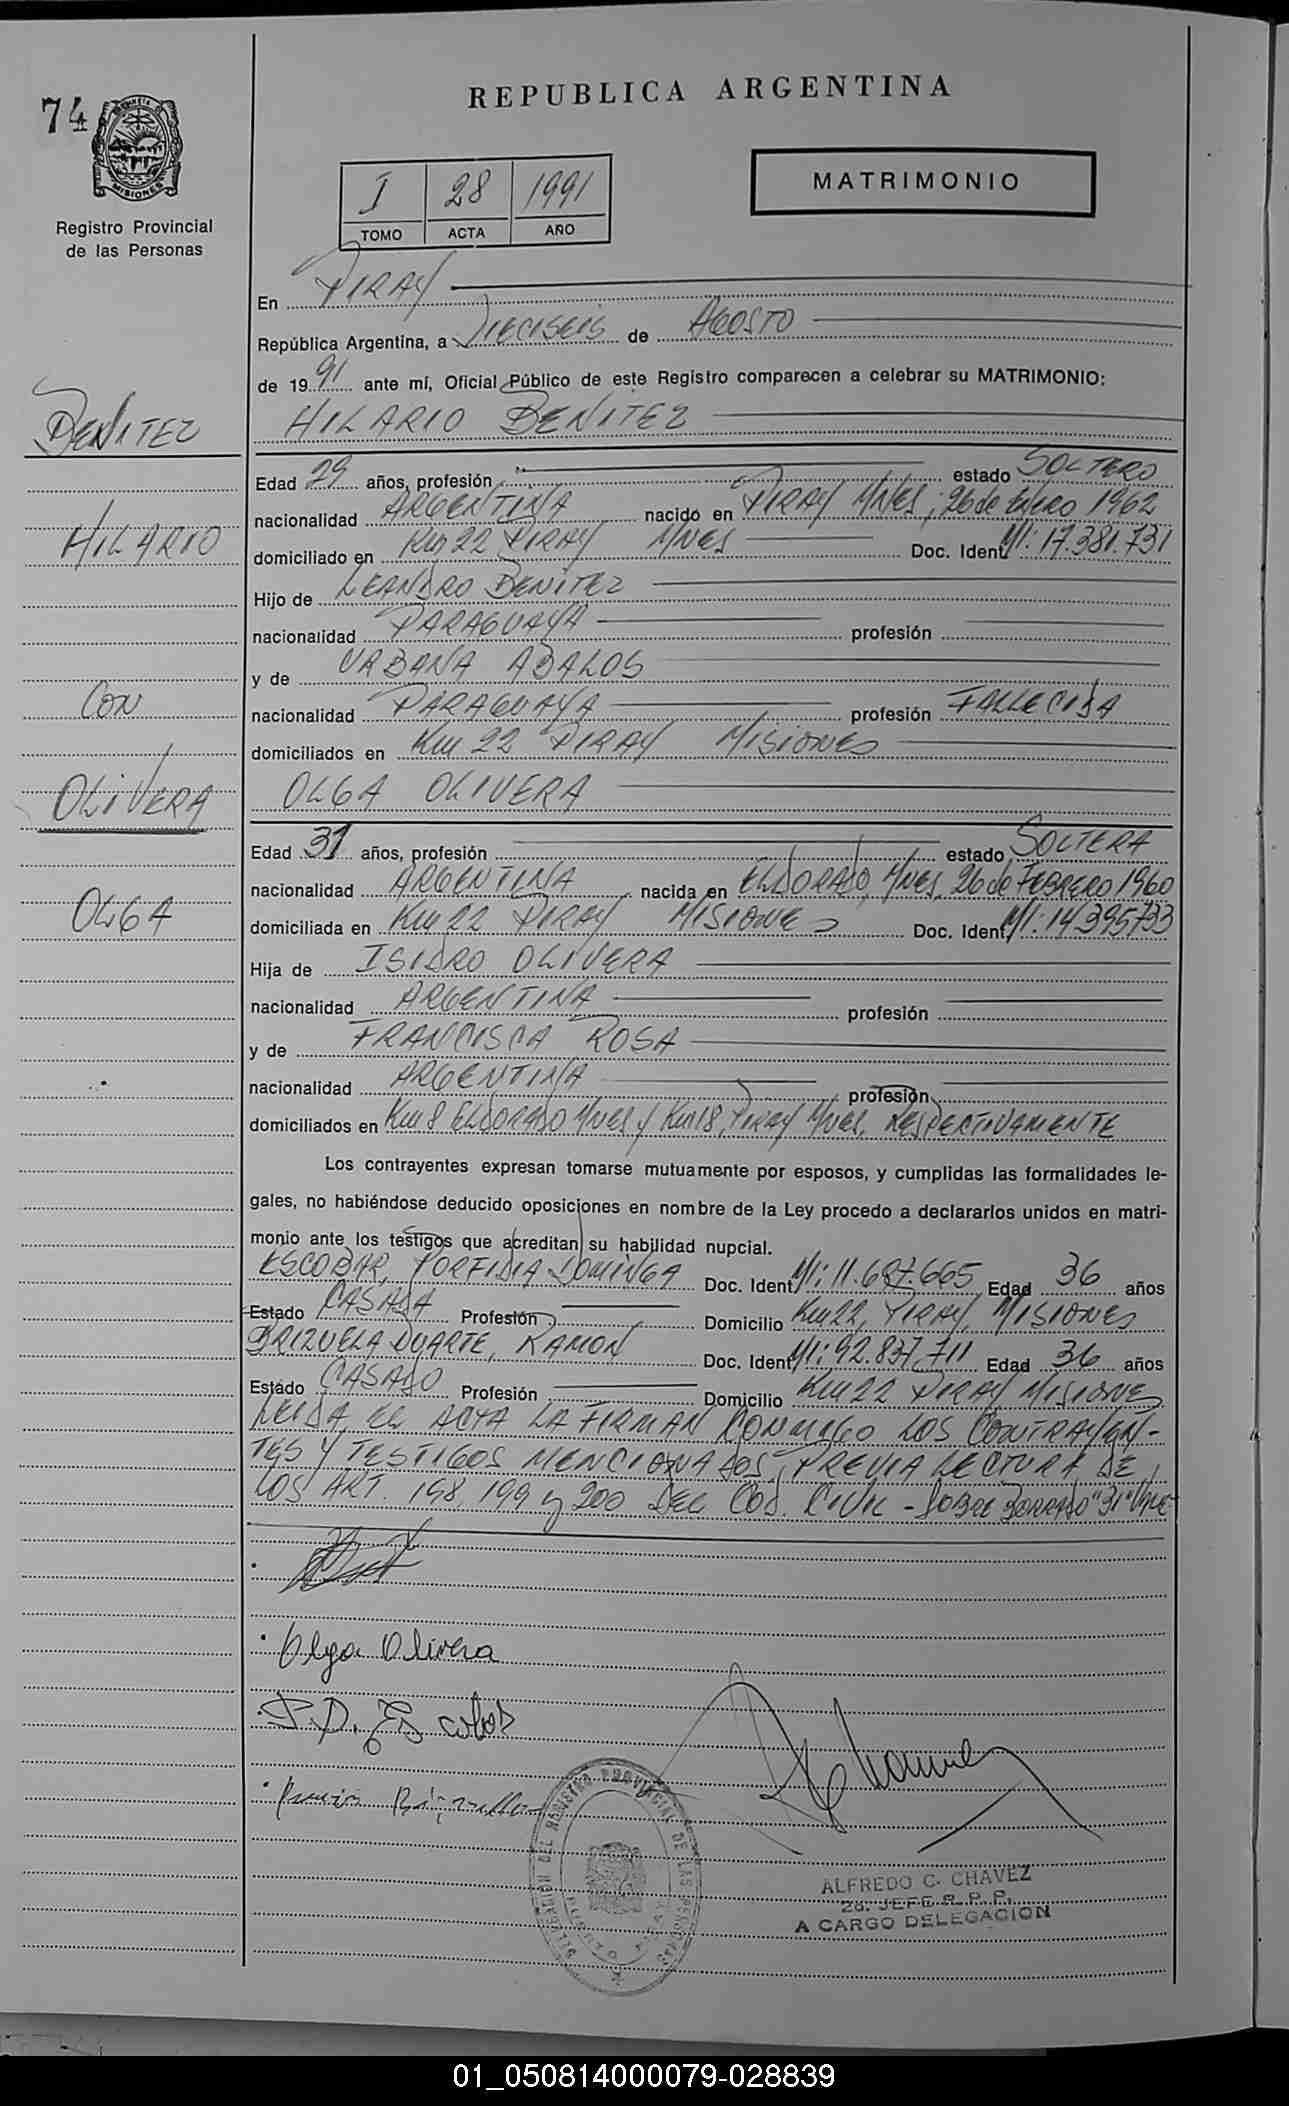 74
MISIONES
Registro Provincial
de las Personas
REPUBLICA ARGENTINA
I 28 1991
TOMO ACTA AÑO
MATRIMONIO
En PIRAY
República Argentina, a DIECISEIS de AGOSTO
de 19 91 ante mí, Oficial Público de este Registro comparecen a celebrar su MATRIMONIO:
HILARIO BENITEZ
BENITEZ
HILARIO
CON
OLIVERA
OLGA
Edad 29 años, profesión estado SOLTERO
nacionalidad ARGENTINA nacido en PIRAY Mnes, 26 de Enero 1962
domiciliado en Km 22 PIRAY Mnes Doc. Ident. MI: 17.381.731
Hijo de LEANDRO BENITEZ
nacionalidad PARAGUAYA profesión
y de URBANA ABALOS
nacionalidad PARAGUAYA profesión FALLECIDA
domiciliados en Km 22 PIRAY MISIONES
OLGA OLIVERA
Edad 31 años, profesión estado SOLTERA
nacionalidad ARGENTINA nacida en ELDORADO, Mnes, 26 de FEBRERO 1960
domiciliada en Km 22 PIRAY MISIONES Doc. Ident. MI: 14.395.733
Hija de ISIDRO OLIVERA
nacionalidad ARGENTINA profesión
y de FRANCISCA ROSA
nacionalidad ARGENTINA profesión
domiciliados en Km 8 ELDORADO Mnes y Km 18, Piray Mnes, RESPECTIVAMENTE
Los contrayentes expresan tomarse mutuamente por esposos, y cumplidas las formalidades le-
gales, no habiéndose deducido oposiciones en nombre de la Ley procedo a declararlos unidos en matri-
monio ante los testigos que acreditan su habilidad nupcial.
ESCOBAR, PORFIDIA DOMINGA Doc. Ident. MI: 11.687.665 Edad 36 años
Estado CASADA Profesión Domicilio Km 22, PIRAY, MISIONES
BRIZUELA DUARTE, RAMON Doc. Ident. MI: 92.837.711 Edad 36 años
Estado CASADO Profesión Domicilio Km 22 PIRAY MISIONES
LEIDA EL ACTA LA FIRMAN CONMIGO LOS CONTRAYEN-
TES Y TESTIGOS MENCIONADOS, PREVIA LECTURA DE
LOS ART. 198, 199 y 200 DEL COD. CIVIL - Sobre Borrado "31" Vale
Olga Olivera
P.D. Escobar
ALFREDO C. CHAVEZ
JEFE R. P. P.
A CARGO DELEGACION
01_050814000079-028839